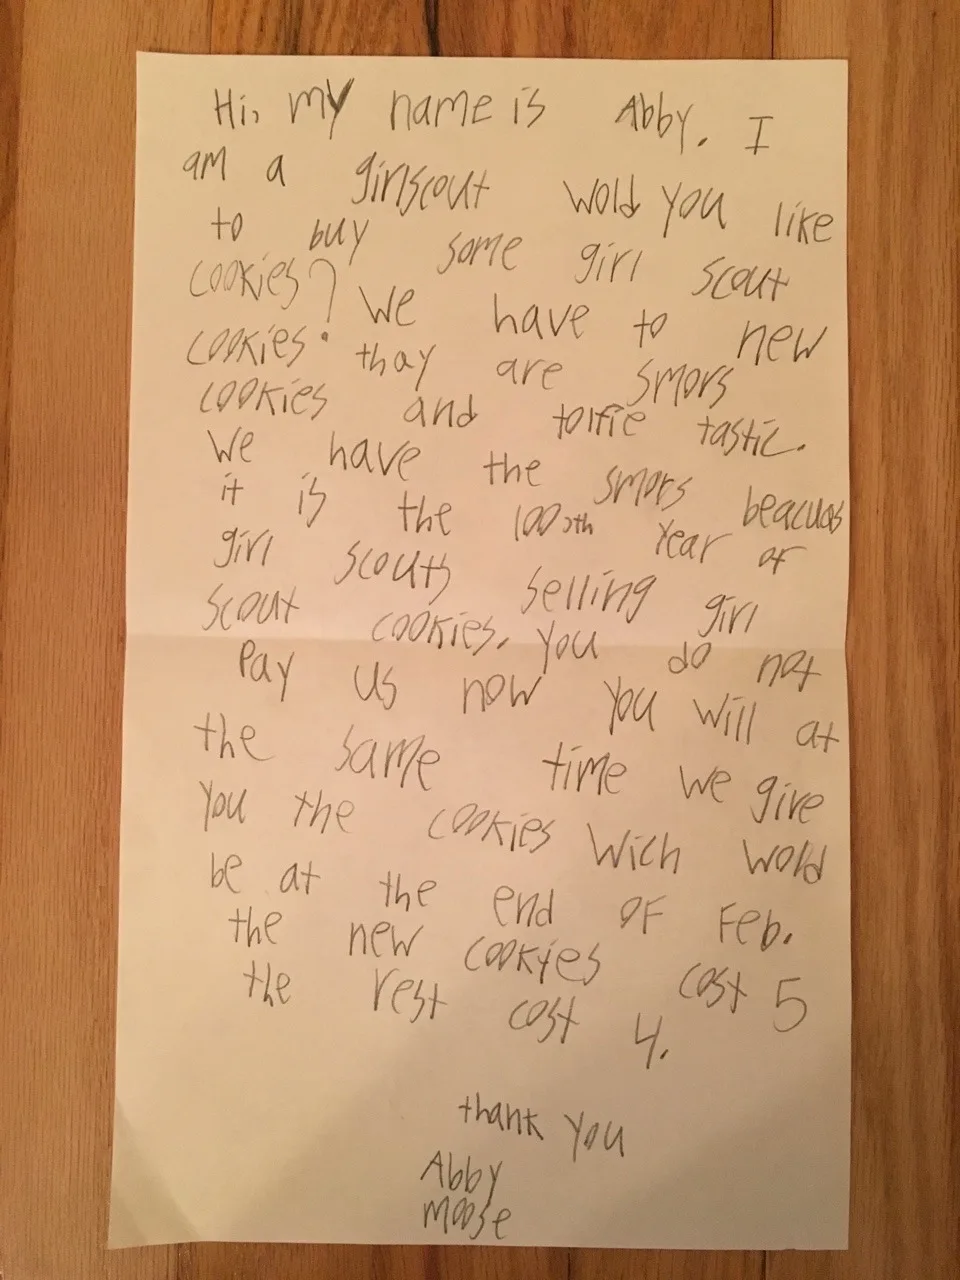 Hi, my name is Abby. I
am a girlscout wold you like
to buy some girl scout
cookies? We have to new
cookies. thay are smors
cookies and tolfie tastic.
We have the smors beacuas
it is the 100th year of
girl scouts selling girl
scout cookies. you do not
Pay us now you will at
the same time we give
you the cookies wich wold
be at the end of Feb.
the new cookyes cost 5
the rest cost 4.
thank you
Abby
moose